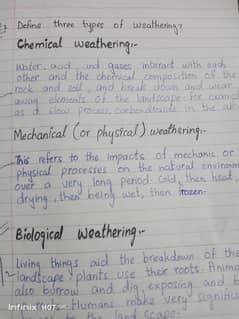 Define three types of weathering?
Chemical weathering:-
Water, acid, and gases interact with each
other and the chemical composition of the
rock and soil, and break down and wear
away elements of the landscape. For exampl
as a slow process, carbondioxide in the
Mechanical (or physical) weathering:-
This refers to the impacts of mechanic or
physical processes on the natural environm
over a very long period cold, then heat,
drying, then being wet, then frozen.
Biological Weathering:-
Living things aid the breakdown of the
landscape plants use their roots. Anima
also burrow and dig, exposing and b
Humans make very signific
to the land scape.
Infinix HOT